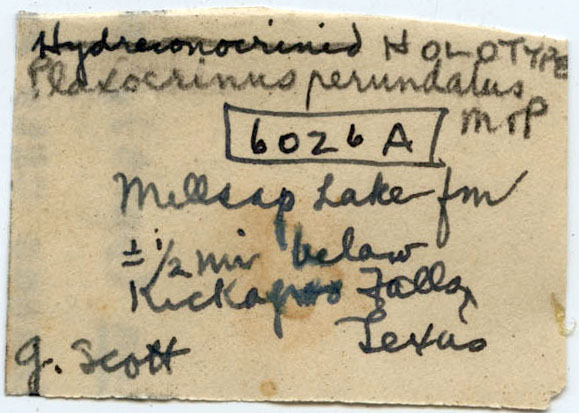 Hydreionocrinid HOLOTYPE
Plaxocrinus perundatus
M & P
6026 A
Millsap Lake fm
± 1/2 mi below
Kickapoo Falls,
Texas
G. Scott